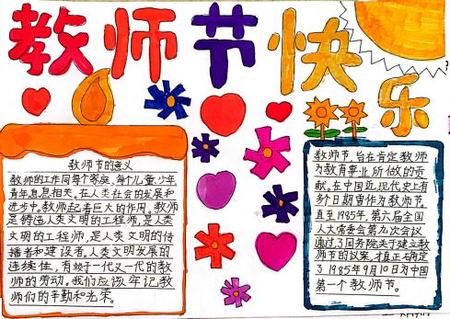 教师节快乐
教师节的意义
教师的工作同每个家庭、每个儿童、少年
青年息息相关。在人类社会的发展和
进步中,教师起着巨大的作用。教师
是铸造人类文明的工程师,是人类
文明的工程师,是人类文明的传
播者和建设者,人类文明发展的
连续性,有赖于一代又一代的教
师的劳动。我们应该牢记教
师们的辛勤和光荣。
教师节,旨在肯定教师
为教育事业所做的贡
献。在中国近现代史上有
多个日期曾作为教师节,
直至1985年,第六届全国
人大常委会第九次会议
通过了国务院关于建立教
师节的议案,才真正确定
了1985年9月10日为中国
第一个教师节。